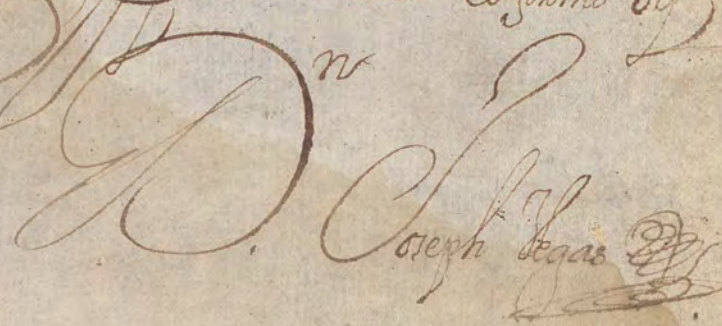 Dn Joseph Vegas